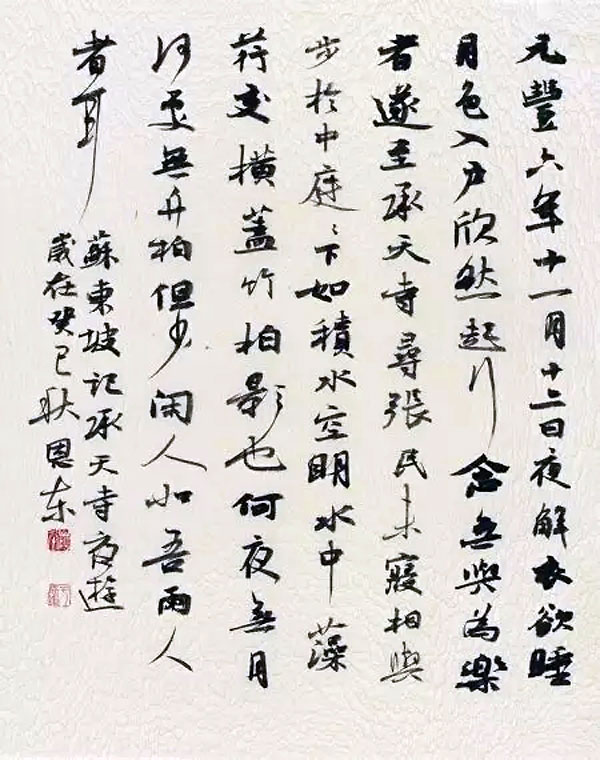 元豐六年十一月十二日夜解衣欲睡
月色入户欣然起行念無與為樂
者遂至承天寺尋張民未寢相與
步於中庭〻下如積水空明水中藻
荇交橫蓋竹柏影也何夜無月
何處無竹柏但少閑人如吾兩人
者耳
蘇東坡記承天寺夜遊
歲在癸巳恩东